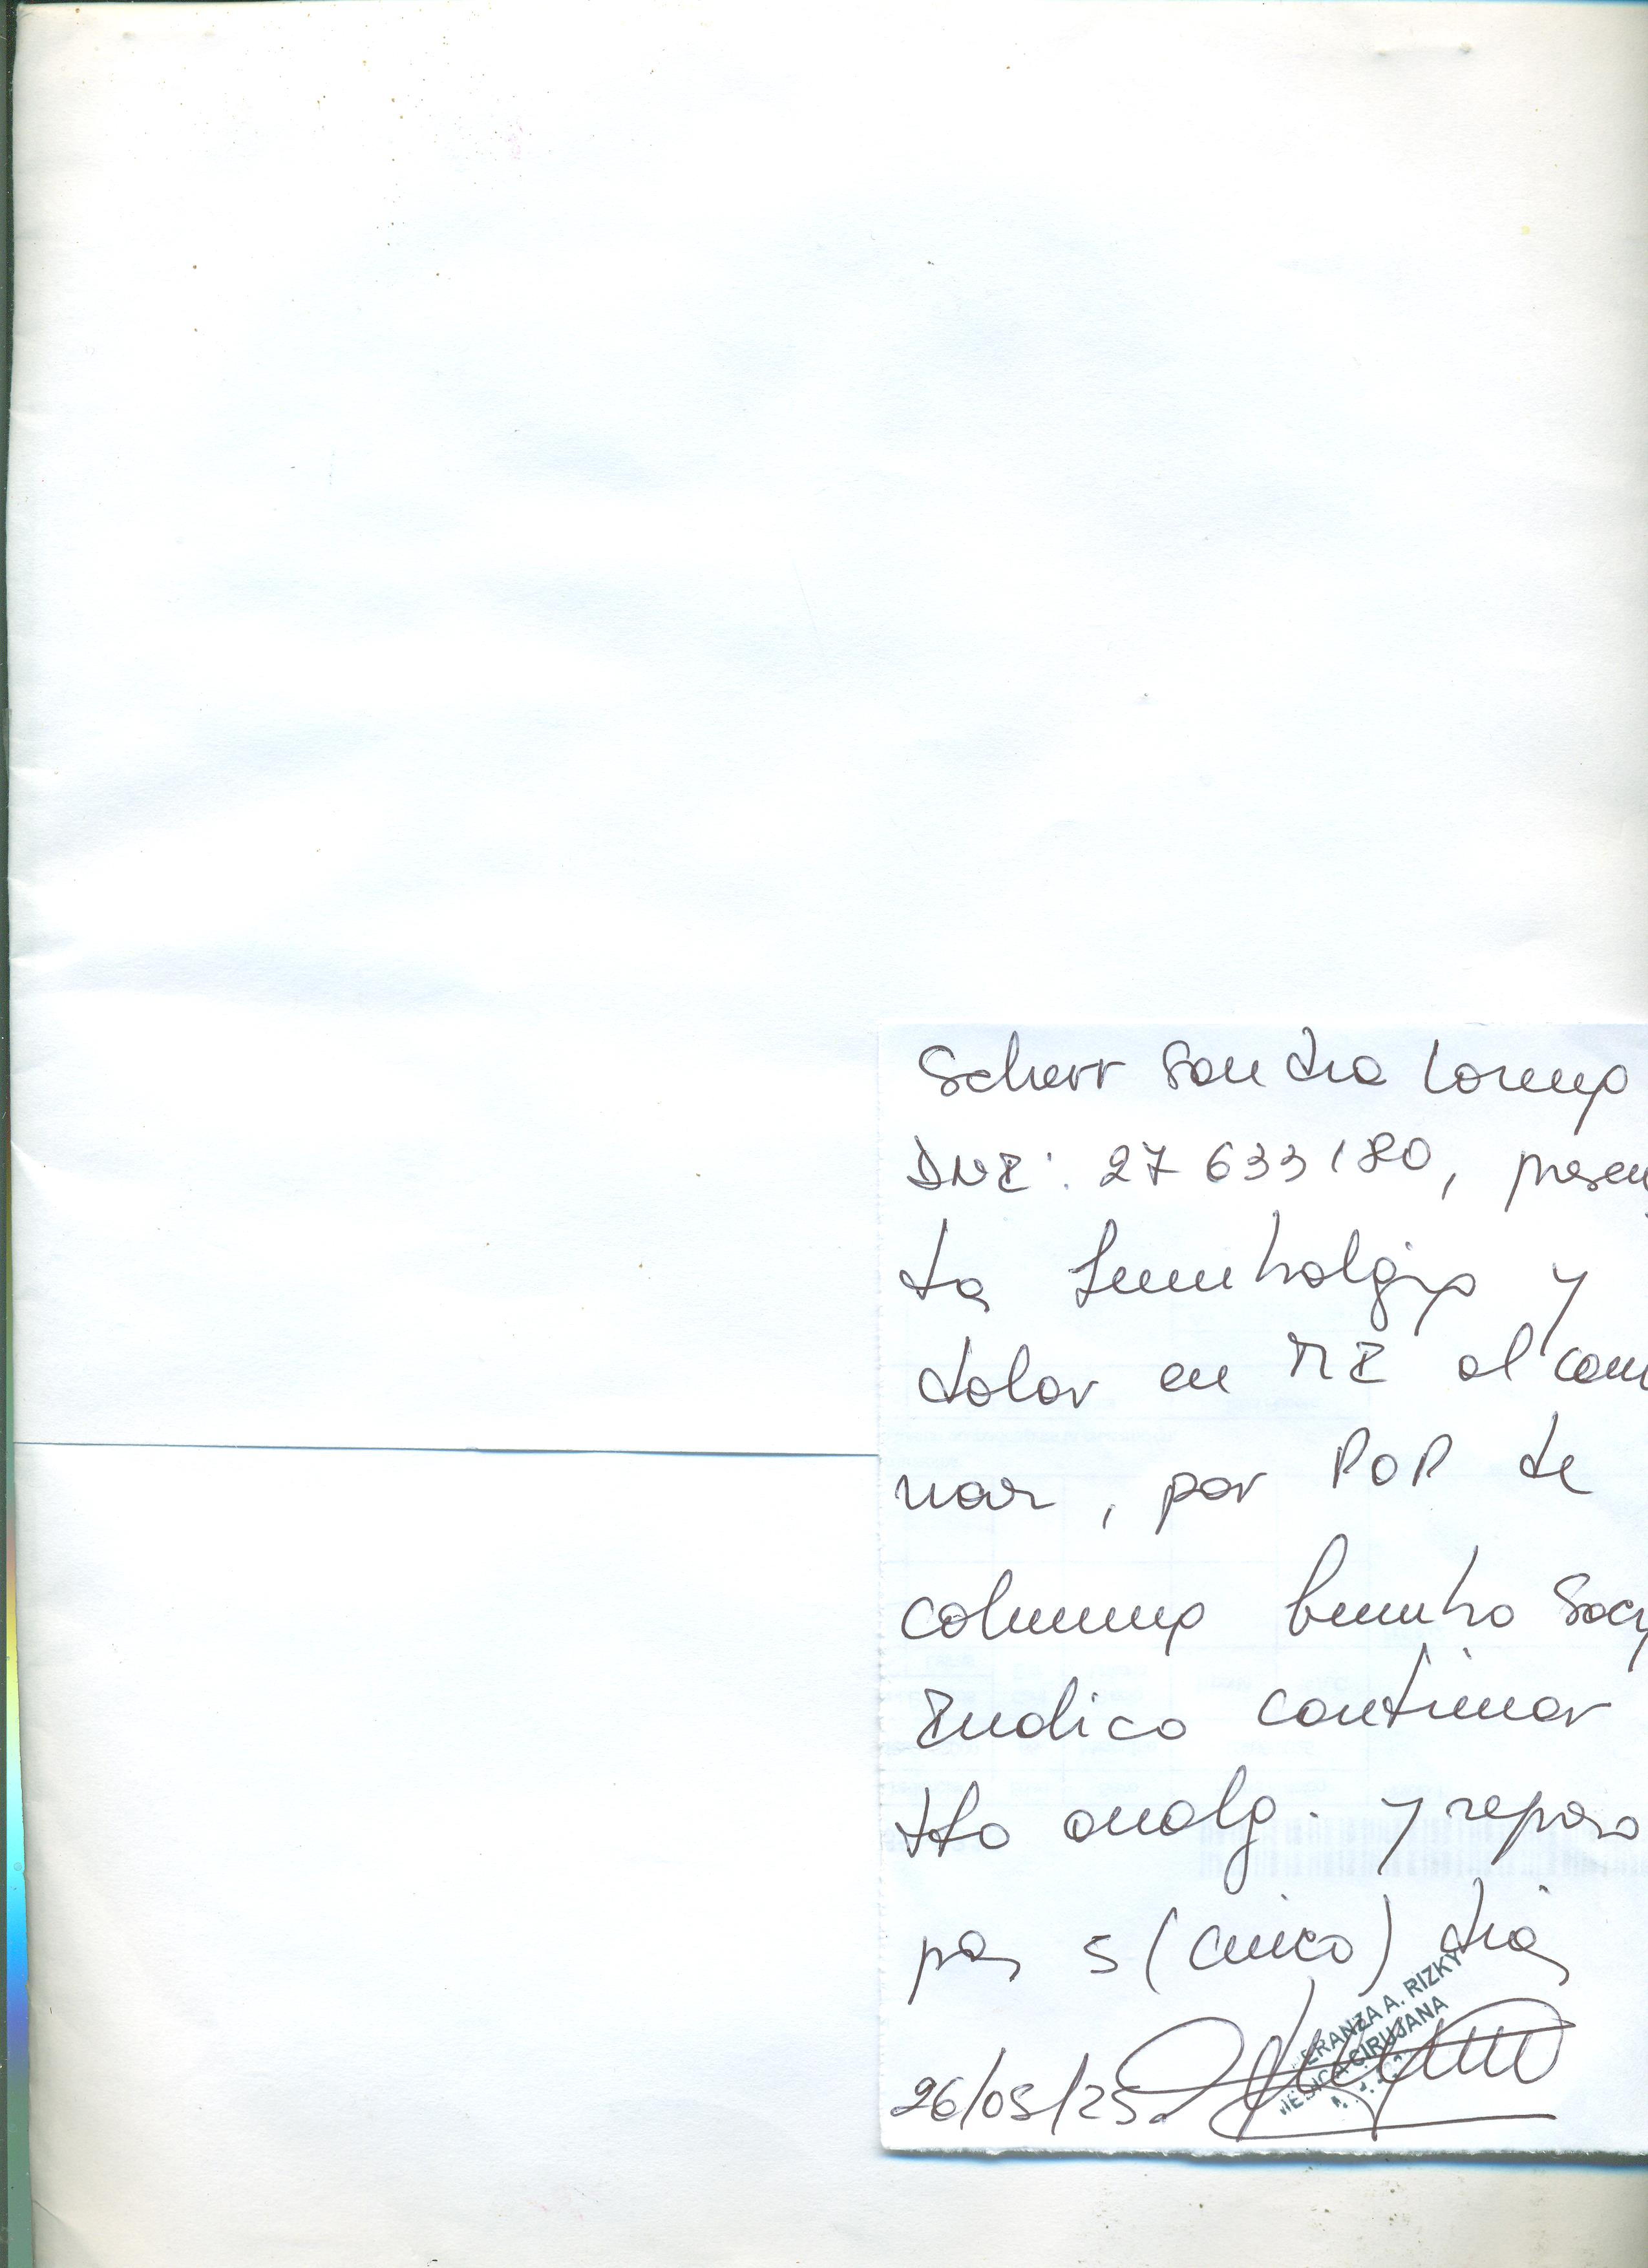 Scherr Sandra Lorena
DNI: 27 633 180, presen
ta Lumbalgia y
dolor en MI al cami
nar, por POP de
columna lumbo Sacr
Indico continuar
tto analg. y reposo
por 5 (cinco) días
26/05/25
ERANZA A. RIZKY
MEDICA CIRUJANA